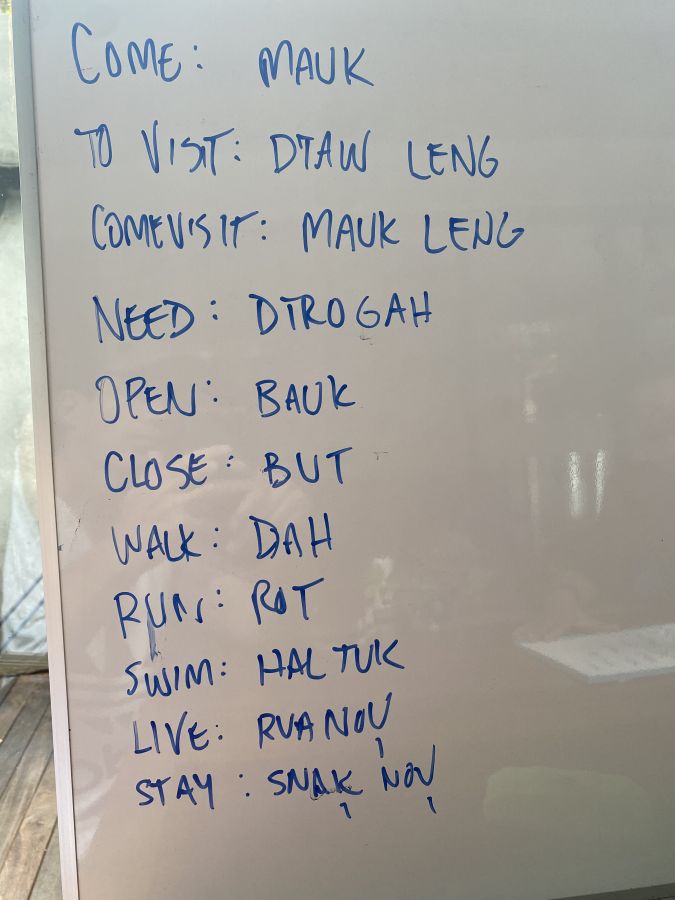 COME: MAUK
TO VISIT: DTAW LENG
COMEVISIT: MAUK LENG
NEED: DTROGAH
OPEN: BAUK
CLOSE: BUT
WALK: DAH
RUN: ROT
SWIM: HAL TUK
LIVE: RUA NOU
STAY: SNAK NOU